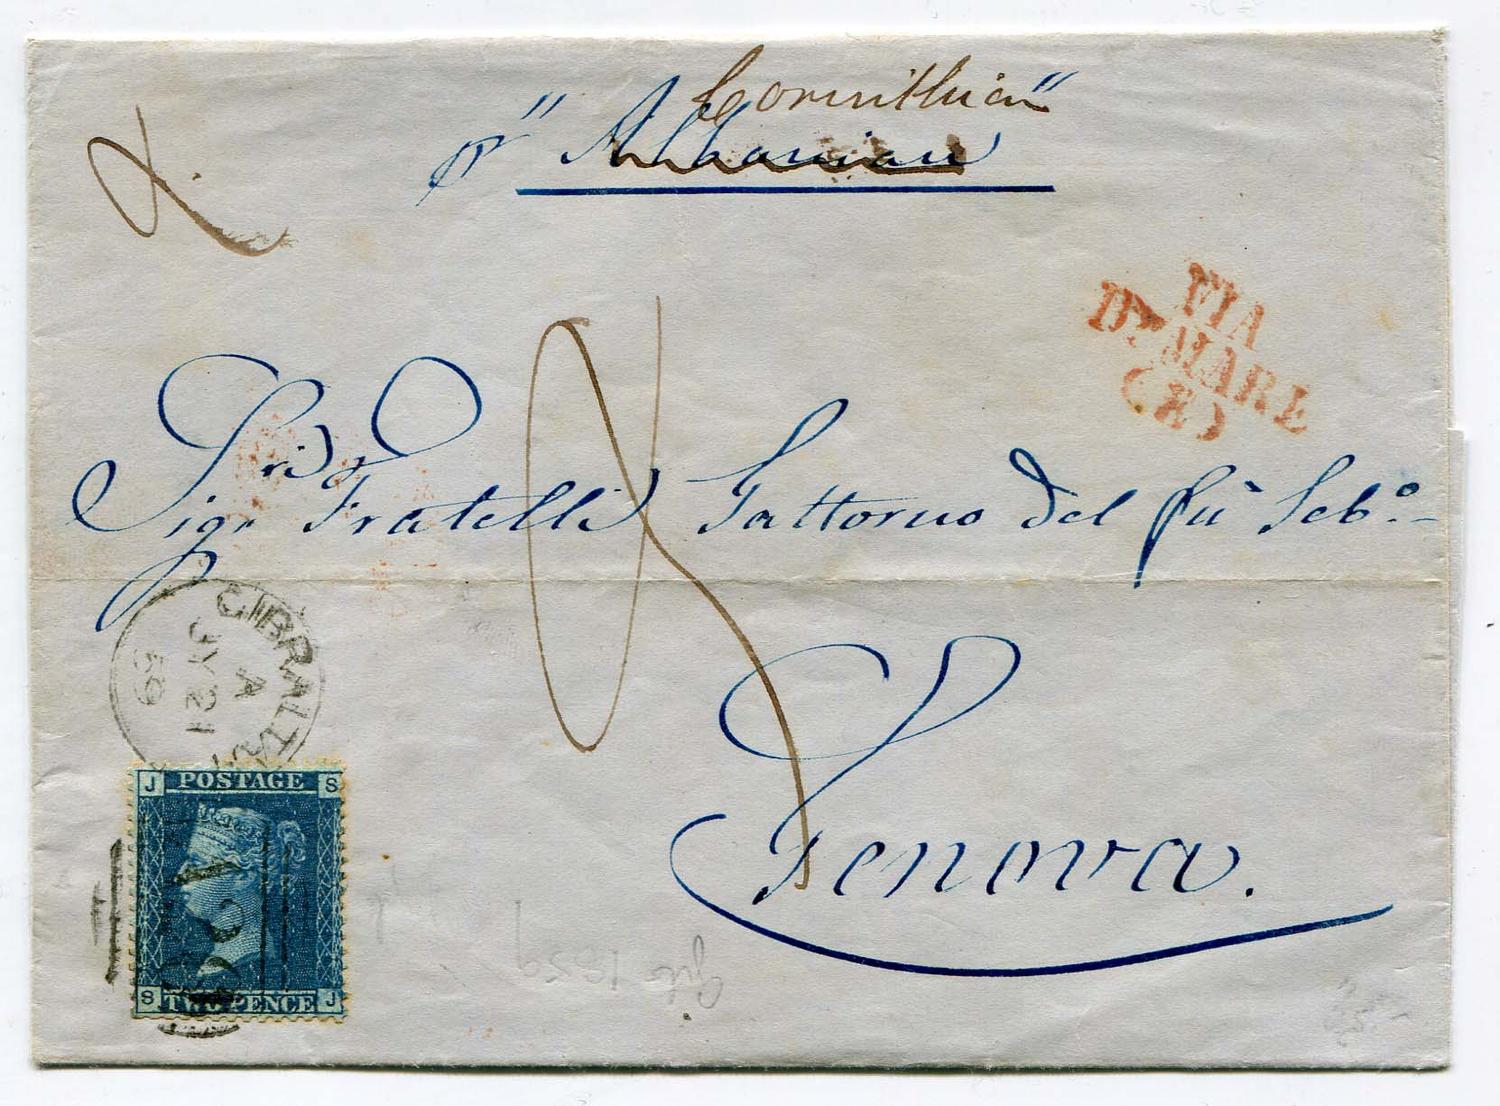 Corinthian"
pr "Albanian
VIA
DI MARE
(E)
Sigri Fratelli Gattorno del fù Seb.o
Genova.
GIBRALTAR
A
JY 21
59
J POSTAGE S
S TWO PENCE J